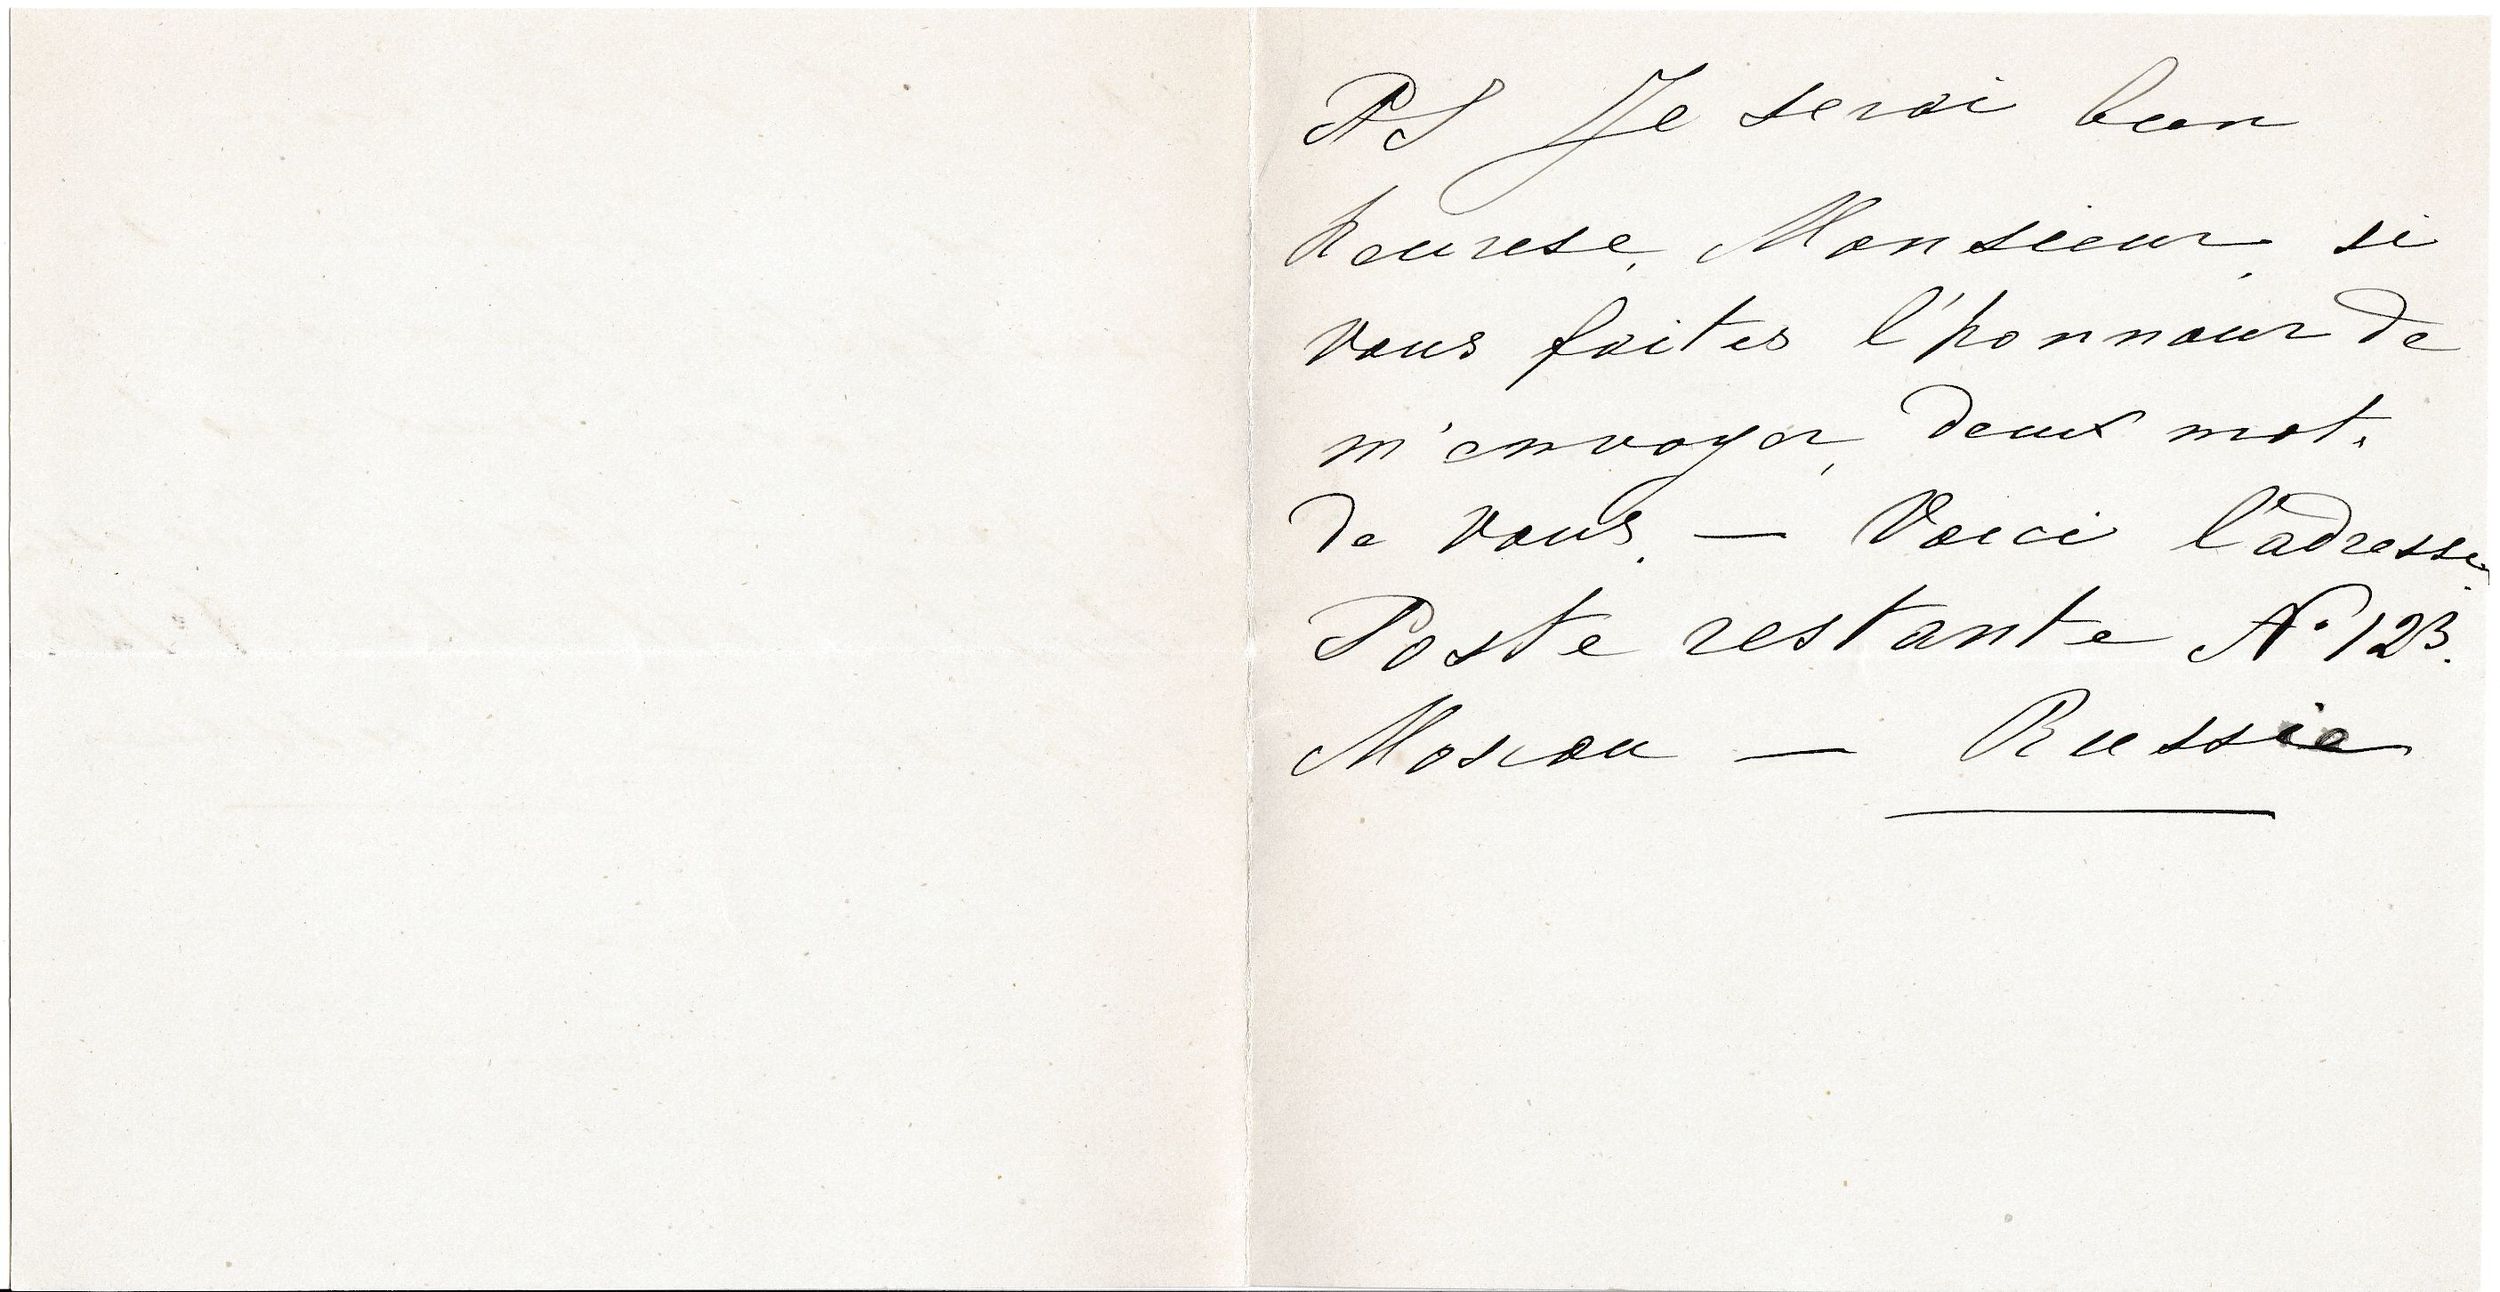 PS Je serai bien
heurese, Monsieur, si
vous faites l'honnour de
m'envoyer, deux mot.
de vous. — Voici l'adresse.
Poste restante N. 123.
Moscou — Russie